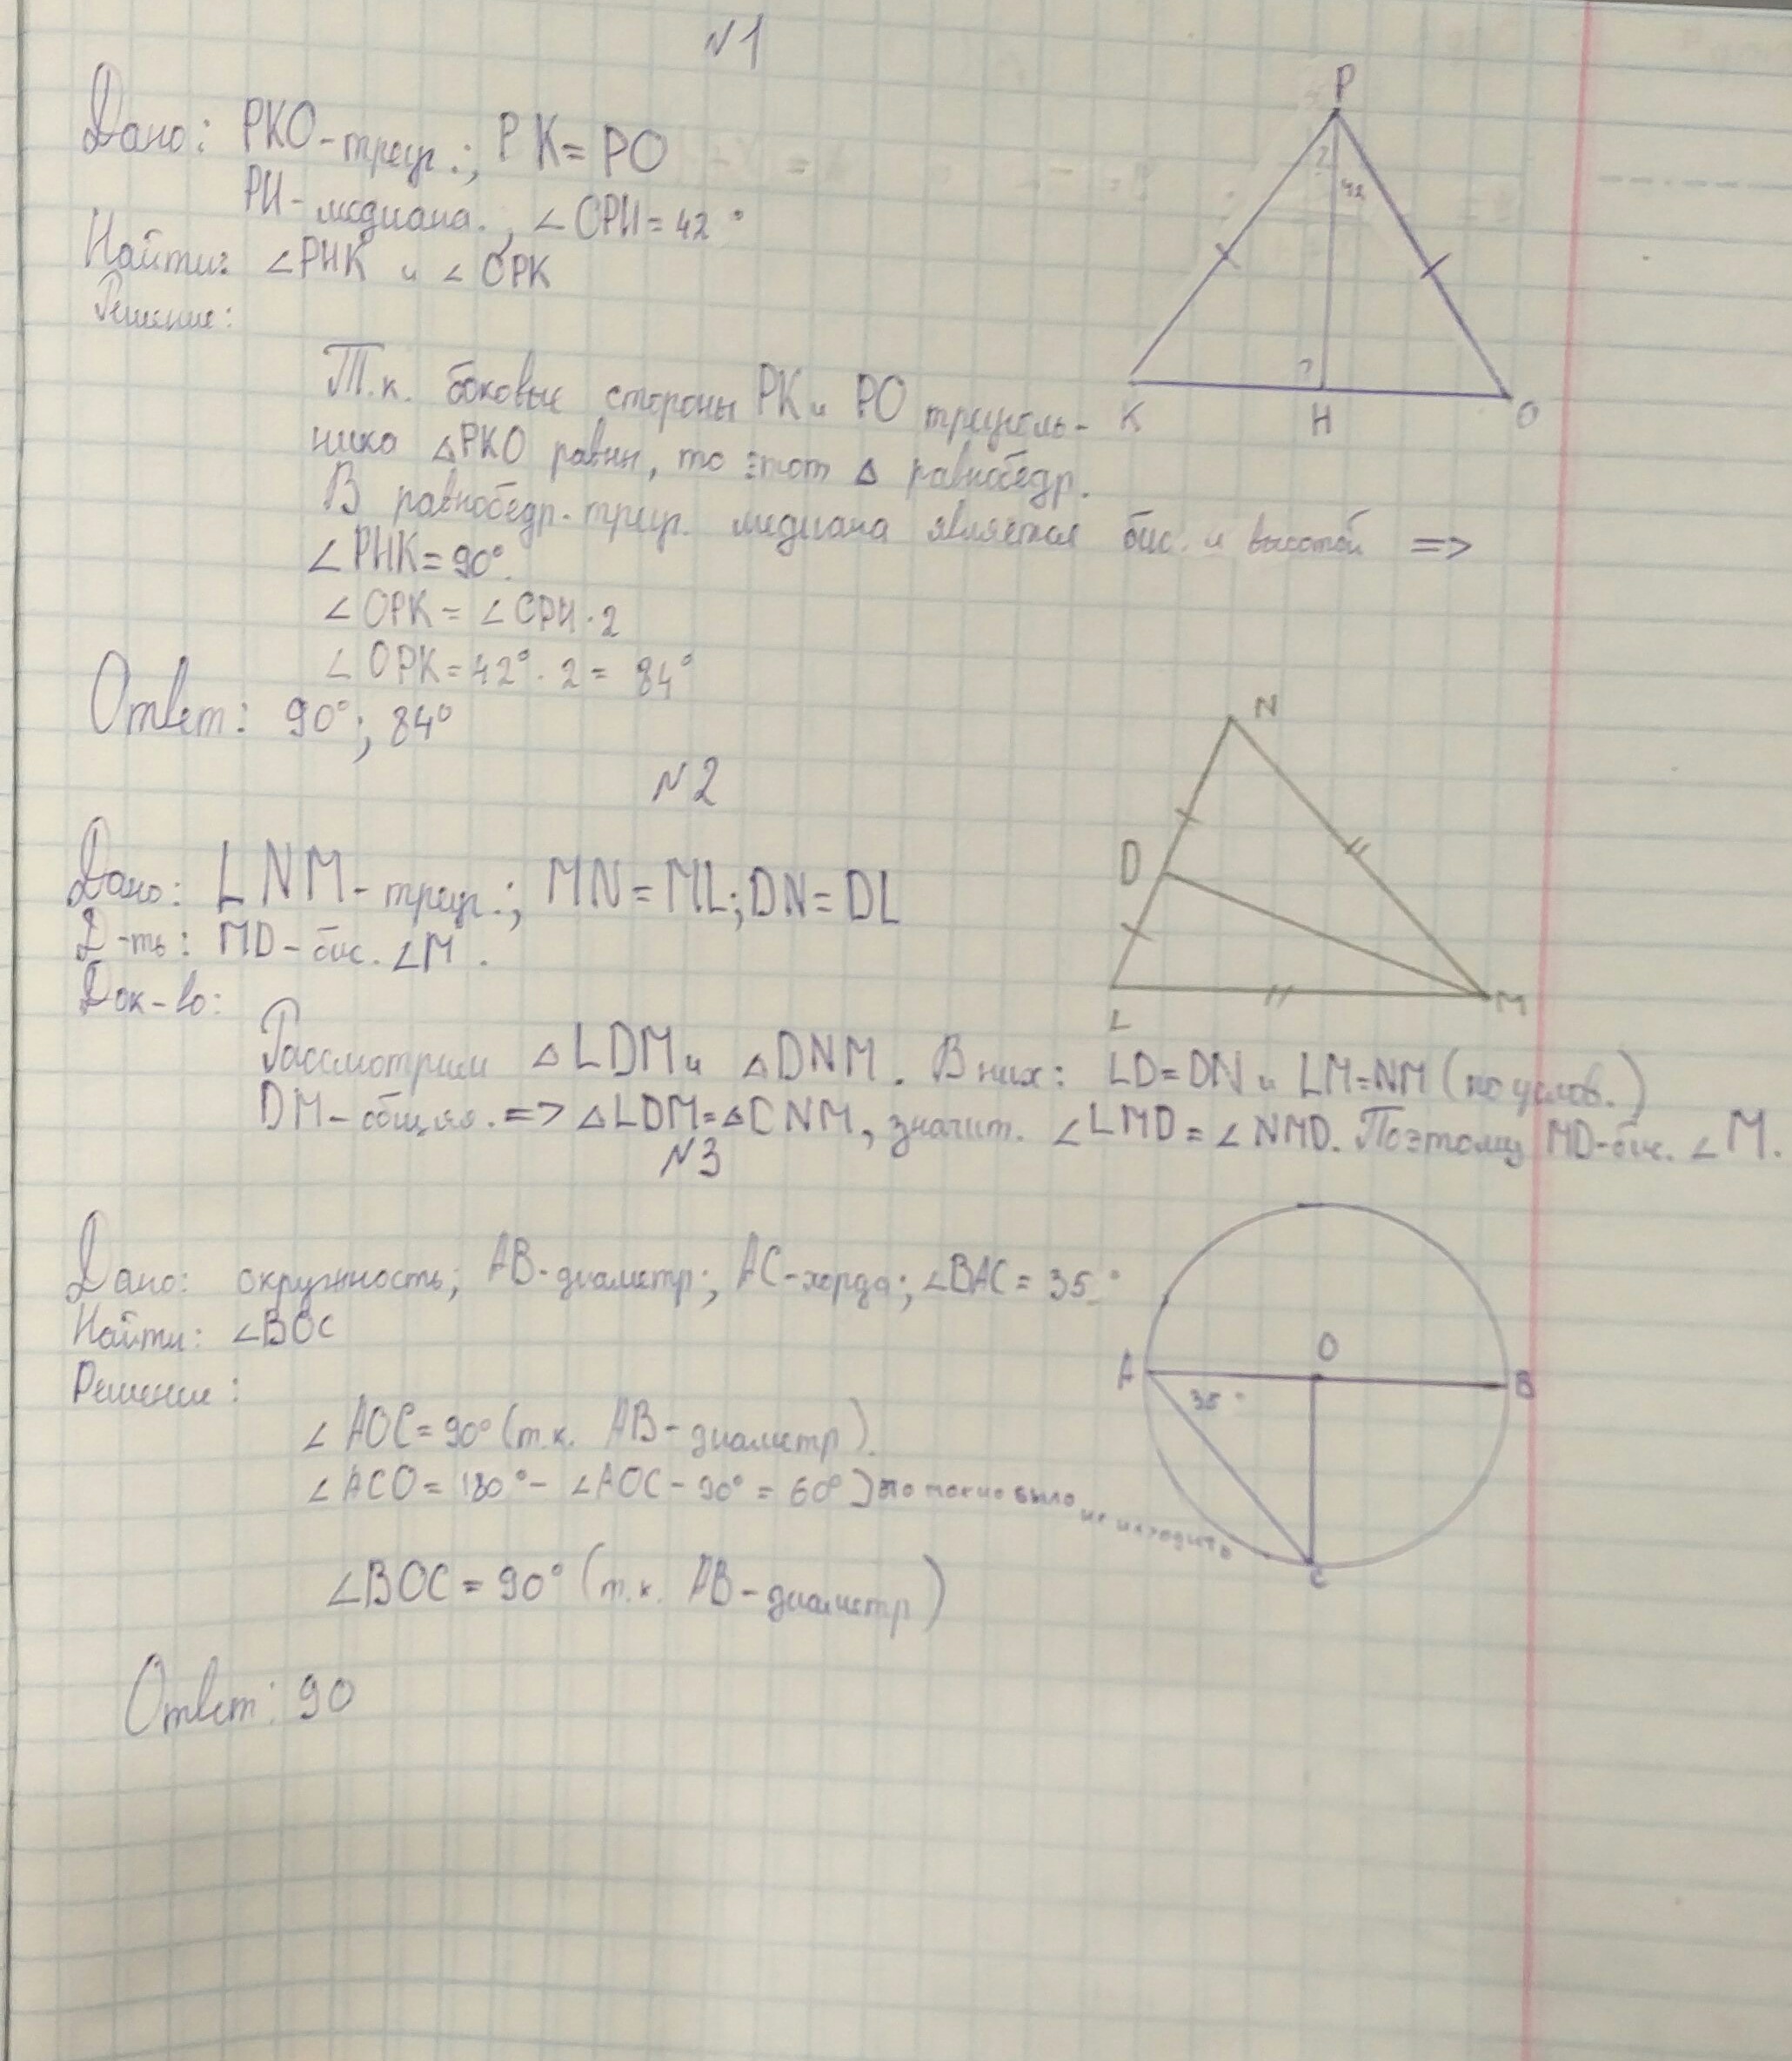 №1
Дано: PKO-треуг.; PK = PO
PH-медиана.; ∠OPH = 42°
Найти: ∠PHK и ∠OPK
Решение:
Т.к. боковые стороны PK и PO треуголь-
ника △PKO равны, то этот △ равнобедр.
В равнобедр. треуг. медиана является бис. и высотой =>
∠PHK = 90°.
∠OPK = ∠OPH · 2
∠OPK = 42° · 2 = 84°
Ответ: 90°; 84°
P
?
42
?
K
H
O
№2
Дано: LNM-треуг.; MN = ML; DN = DL
Д-ть: MD-бис. ∠M.
Док-во:
Рассмотрим △LDM и △DNM. В них: LD = DN и LM = NM (по услов.)
DM-общая. => △LDM = △DNM, значит. ∠LMD = ∠NMD. Поэтому MD-бис. ∠M.
N
D
L
M
№3
Дано: окружность; AB-диаметр; AC-хорда; ∠BAC = 35°
Найти: ∠BOC
Решение:
∠AOC = 90° (т.к. AB-диаметр).
∠ACO = 180° - ∠AOC - 90° = 60° это можно было
не находить
∠BOC = 90° (т.к. AB-диаметр)
Ответ: 90
A
O
B
35°
C